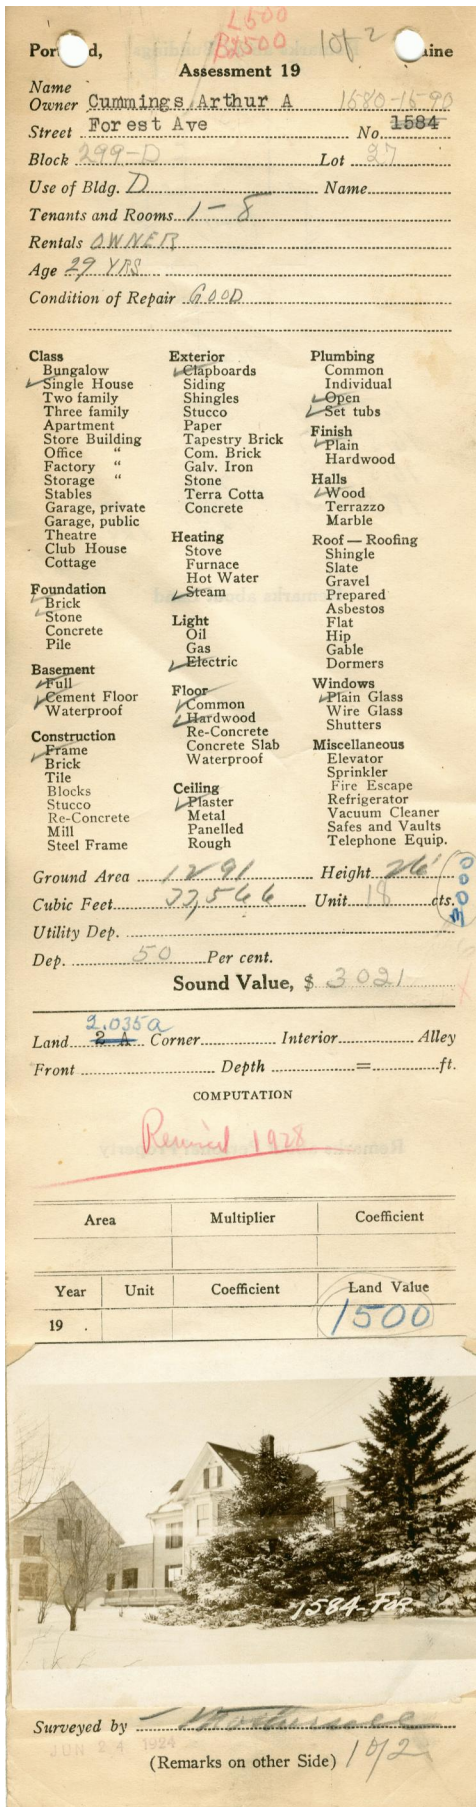 L500
B2500 1 of 2
Portland, Maine
Assessment 19
Name
Owner Cummings, Arthur A 1580-1590
Street Forest Ave No. 1584
Block 299-D Lot 27
Use of Bldg. D Name
Tenants and Rooms 1-8
Rentals OWNER
Age 29 YRS
Condition of Repair GOOD
Class
Bungalow
Single House
Two family
Three family
Apartment
Store Building
Office "
Factory "
Storage "
Stables
Garage, private
Garage, public
Theatre
Club House
Cottage
Foundation
Brick
Stone
Concrete
Pile
Basement
Full
Cement Floor
Waterproof
Construction
Frame
Brick
Tile
Blocks
Stucco
Re-Concrete
Mill
Steel Frame
Exterior
Clapboards
Siding
Shingles
Stucco
Paper
Tapestry Brick
Com. Brick
Galv. Iron
Stone
Terra Cotta
Concrete
Heating
Stove
Furnace
Hot Water
Steam
Light
Oil
Gas
Electric
Floor
Common
Hardwood
Re-Concrete
Concrete Slab
Waterproof
Ceiling
Plaster
Metal
Panelled
Rough
Plumbing
Common
Individual
Open
Set tubs
Finish
Plain
Hardwood
Halls
Wood
Terrazzo
Marble
Roof — Roofing
Shingle
Slate
Gravel
Prepared
Asbestos
Flat
Hip
Gable
Dormers
Windows
Plain Glass
Wire Glass
Shutters
Miscellaneous
Elevator
Sprinkler
Fire Escape
Refrigerator
Vacuum Cleaner
Safes and Vaults
Telephone Equip.
Ground Area 1291 Height 26'
Cubic Feet 33,566 Unit 18 cts.
3000
Utility Dep.
Dep. 50 Per cent.
Sound Value, $ 3021
2.035a
Land 2 A Corner Interior Alley
Front Depth = ft.
COMPUTATION
Revised 1928
Area Multiplier Coefficient
Year Unit Coefficient Land Value
19 . 1500
1584-FOR
Surveyed by
JUN 24 1924
(Remarks on other Side) 1 of 2